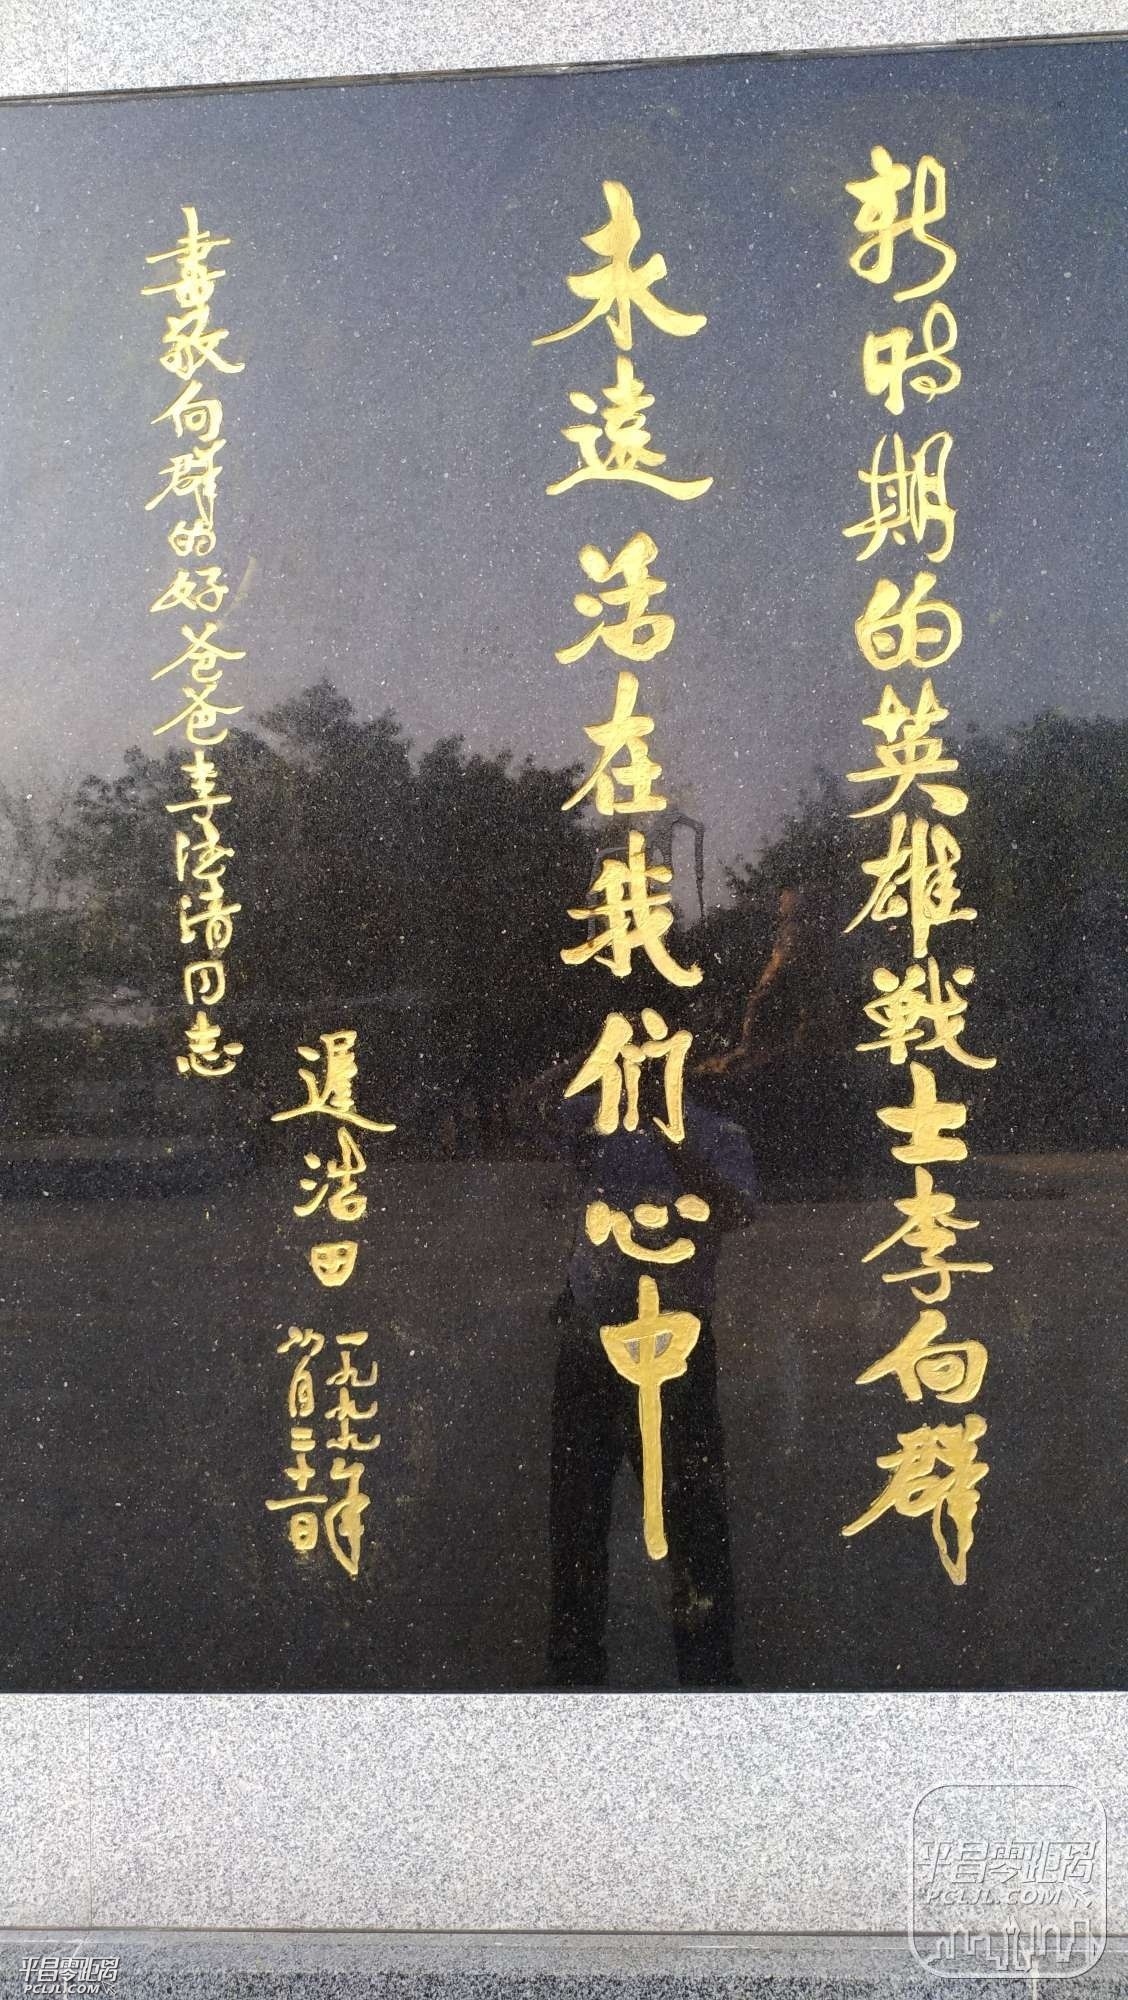 新時期的英雄戰士李向群
永遠活在我们心中
遲浩田
一九九九年
八月二十一日
書敬向群的好爸爸李德清同志
平昌零距离
PCLJL.COM
平昌零距离
PCLJL.COM